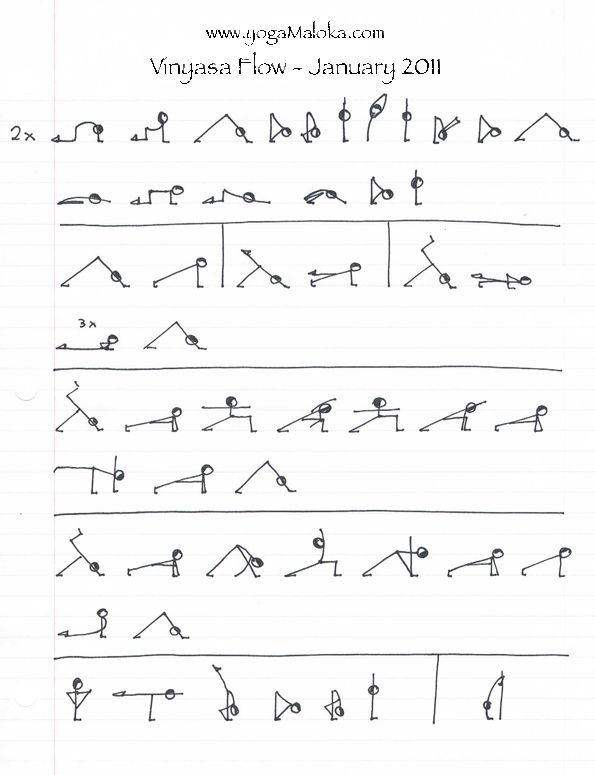 www.yogaMaloka.com
Vinyasa Flow - January 2011
2x
3x